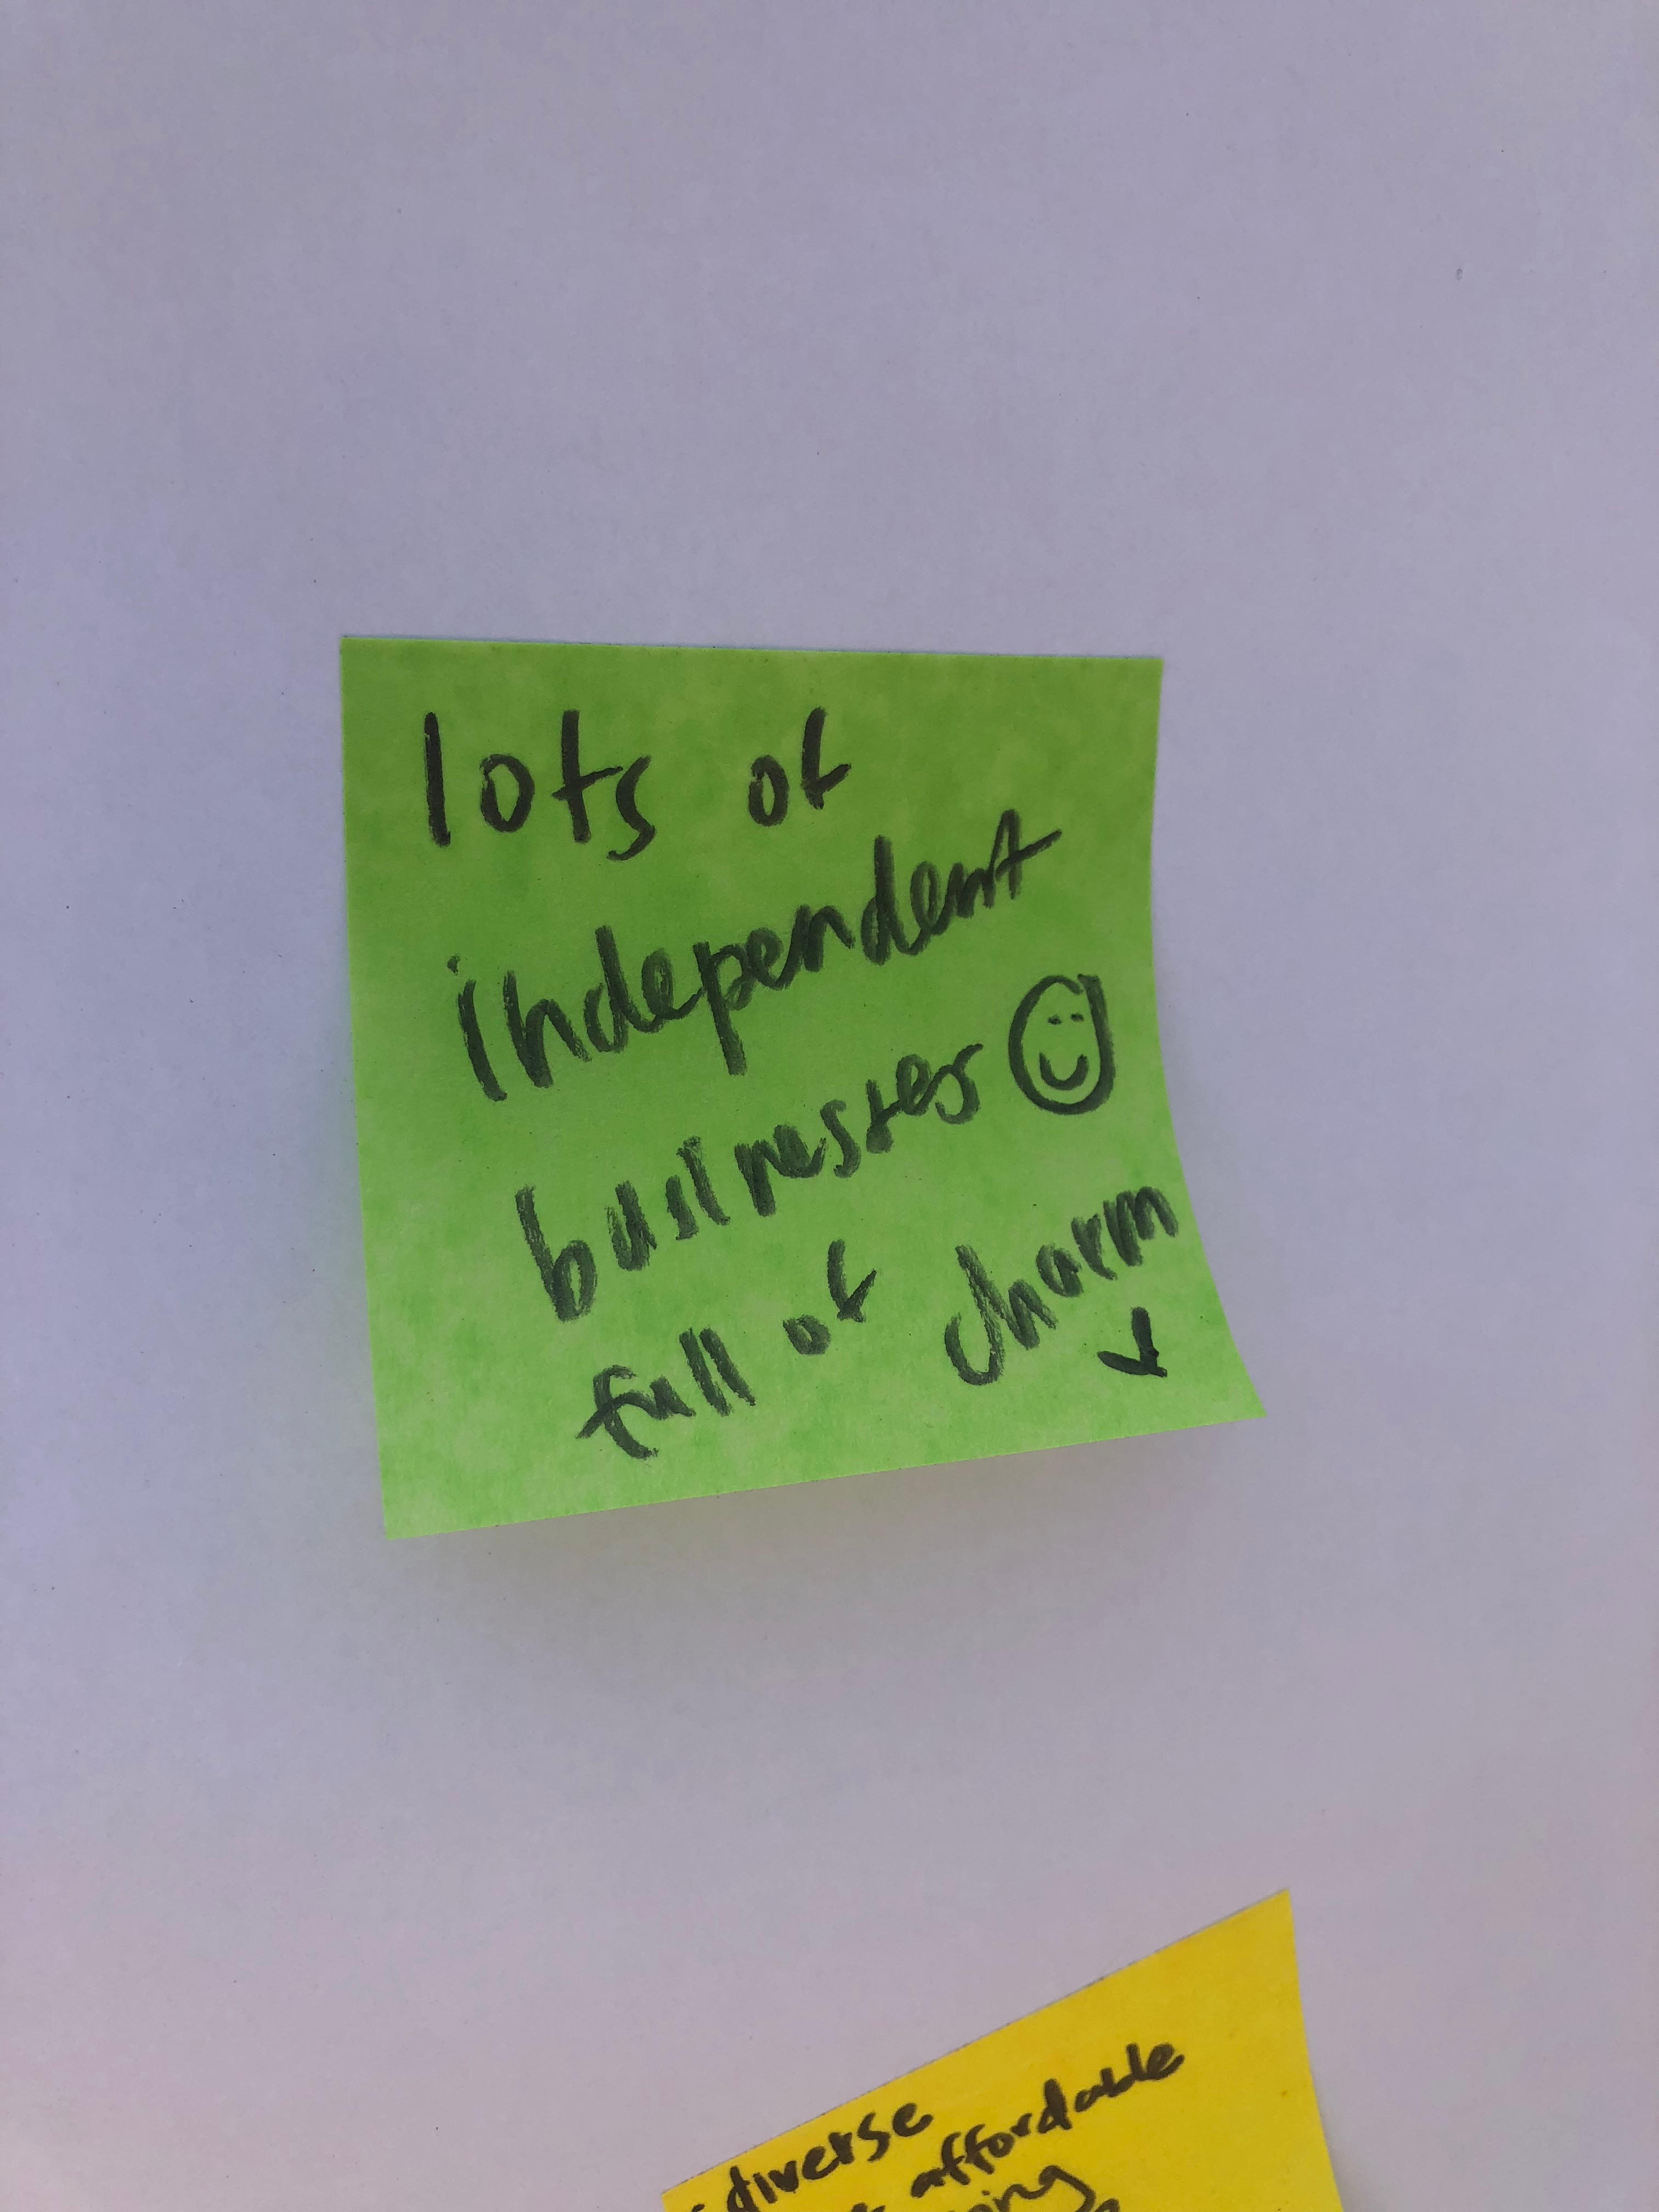 lots of
independent
businesses
full of charm
diverse
affordable